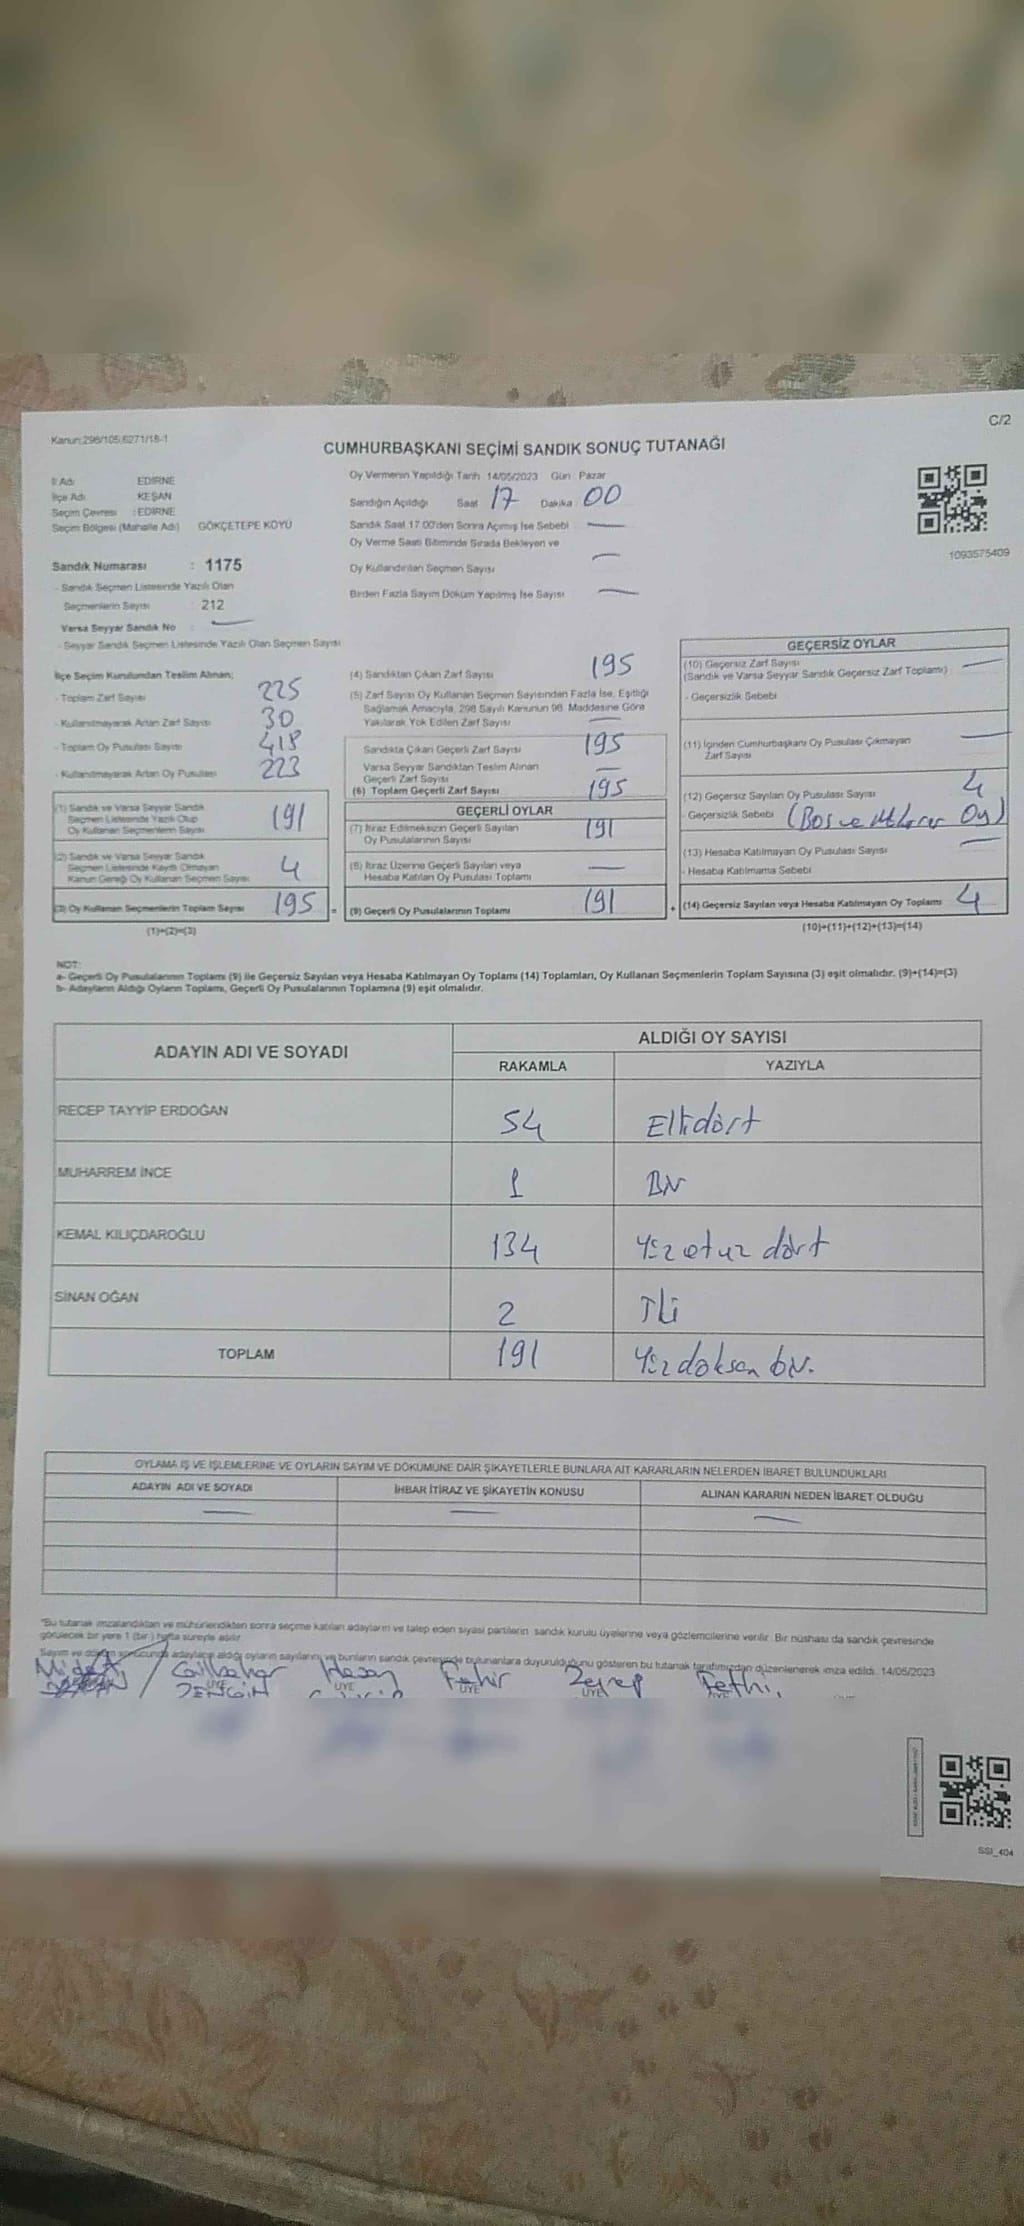 C/2
Kanun:298/105,6271/18-1
CUMHURBAŞKANI SEÇİMİ SANDIK SONUÇ TUTANAĞI
İl Adı EDİRNE
İlçe Adı KEŞAN
Seçim Çevresi : EDİRNE
Seçim Bölgesi (Mahalle Adı) GÖKÇETEPE KÖYÜ
Sandık Numarası : 1175
- Sandık Seçmen Listesinde Yazılı Olan
Seçmenlerin Sayısı 212
Varsa Seyyar Sandık No :
- Seyyar Sandık Seçmen Listesinde Yazılı Olan Seçmen Sayısı
Oy Vermenin Yapıldığı Tarih 14/05/2023 Gün : Pazar
Sandığın Açıldığı Saat 17 Dakika : 00
Sandık Saat 17.00'den Sonra Açımış İse Sebebi
Oy Verme Saati Bitiminde Sırada Bekleyen ve
Oy Kullandırılan Seçmen Sayısı
Birden Fazla Sayım Döküm Yapılmış İse Sayısı
1093575409
İlçe Seçim Kurulundan Teslim Alınan;
- Toplam Zarf Sayısı 225
- Kullanılmayarak Artan Zarf Sayısı 30
- Toplam Oy Pusulası Sayısı 418
- Kullanılmayarak Artan Oy Pusulası 223
(1) Sandık ve Varsa Seyyar Sandık
Seçmen Listesinde Yazılı Olup
Oy Kullanan Seçmenlerin Sayısı 191
(2) Sandık ve Varsa Seyyar Sandık
Seçmen Listesinde Kayıtlı Olmayan
Kanun Gereği Oy Kullanan Seçmen Sayısı 4
(3) Oy Kullanan Seçmenlerin Toplam Sayısı 195 =
(1)+(2)=(3)
(4) Sandıktan Çıkan Zarf Sayısı 195
(5) Zarf Sayısı Oy Kullanan Seçmen Sayısından Fazla İse, Eşitliği
Sağlamak Amacıyla, 298 Sayılı Kanunun 98. Maddesine Göre
Yakılarak Yok Edilen Zarf Sayısı
Sandıkta Çıkan Geçerli Zarf Sayısı 195
Varsa Seyyar Sandıktan Teslim Alınan
Geçerli Zarf Sayısı
(6) Toplam Geçerli Zarf Sayısı 195
GEÇERLİ OYLAR
(7) İtiraz Edilmeksizin Geçerli Sayılan
Oy Pusulalarının Sayısı 191
(8) İtiraz Üzerine Geçerli Sayılan veya
Hesaba Katılan Oy Pusulası Toplamı
(9) Geçerli Oy Pusulalarının Toplamı 191 +
GEÇERSİZ OYLAR
(10) Geçersiz Zarf Sayısı
(Sandık ve Varsa Seyyar Sandık Geçersiz Zarf Toplamı)
- Geçersizlik Sebebi
(11) İçinden Cumhurbaşkanı Oy Pusulası Çıkmayan
Zarf Sayısı
(12) Geçersiz Sayılan Oy Pusulası Sayısı 4
- Geçersizlik Sebebi (Boş ve Oy)
(13) Hesaba Katılmayan Oy Pusulası Sayısı
- Hesaba Katılmama Sebebi
(14) Geçersiz Sayılan veya Hesaba Katılmayan Oy Toplamı 4
(10)+(11)+(12)+(13)=(14)
NOT:
a- Geçerli Oy Pusulalarının Toplamı (9) ile Geçersiz Sayılan veya Hesaba Katılmayan Oy Toplamı (14) Toplamları, Oy Kullanan Seçmenlerin Toplam Sayısına (3) eşit olmalıdır. (9)+(14)=(3)
b- Adayların Aldığı Oyların Toplamı, Geçerli Oy Pusulalarının Toplamına (9) eşit olmalıdır.
ADAYIN ADI VE SOYADI ALDIĞI OY SAYISI
RAKAMLA YAZIYLA
RECEP TAYYİP ERDOĞAN 54 Ellidört
MUHARREM İNCE 1 Bir
KEMAL KILIÇDAROĞLU 134 Yüz otuz dört
SİNAN OĞAN 2 İki
TOPLAM 191 Yüzdoksan bir.
OYLAMA İŞ VE İŞLEMLERİNE VE OYLARIN SAYIM VE DÖKÜMÜNE DAİR ŞİKAYETLERLE BUNLARA AİT KARARLARIN NELERDEN İBARET BULUNDUKLARI
ADAYIN ADI VE SOYADI İHBAR İTİRAZ VE ŞİKAYETİN KONUSU ALINAN KARARIN NEDEN İBARET OLDUĞU
*Bu tutanak imzalandıktan ve mühürlendikten sonra seçime katılan adayların ve talep eden siyasi partilerin sandık kurulu üyelerine veya gözlemcilerine verilir. Bir nüshası da sandık çevresinde
görülecek bir yere 1 (bir) hafta süreyle asılır.
Sayım ve döküm sonucunda adayların aldığı oyların sayılarını ve bunların sandık çevresinde bulunanlara duyurulduğunu gösteren bu tutanak tarafımızdan düzenlenerek imza edildi. 14/05/2023
Hasan Zeynep Fethi
ÜYE ÜYE ÜYE ÜYE
SSI_404